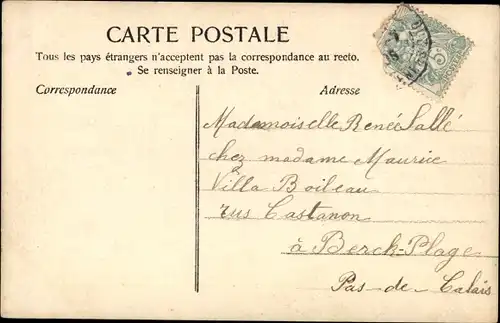 CARTE POSTALE
Tous les pays étrangers n'acceptent pas la correspondance au recto.
Se renseigner à la Poste.
Correspondance
Adresse
Mademoiselle Renée Sallé
chez madame Maurice
Villa Boileau
rus Castanon
à Berck-Plage
Pas-de-Calais